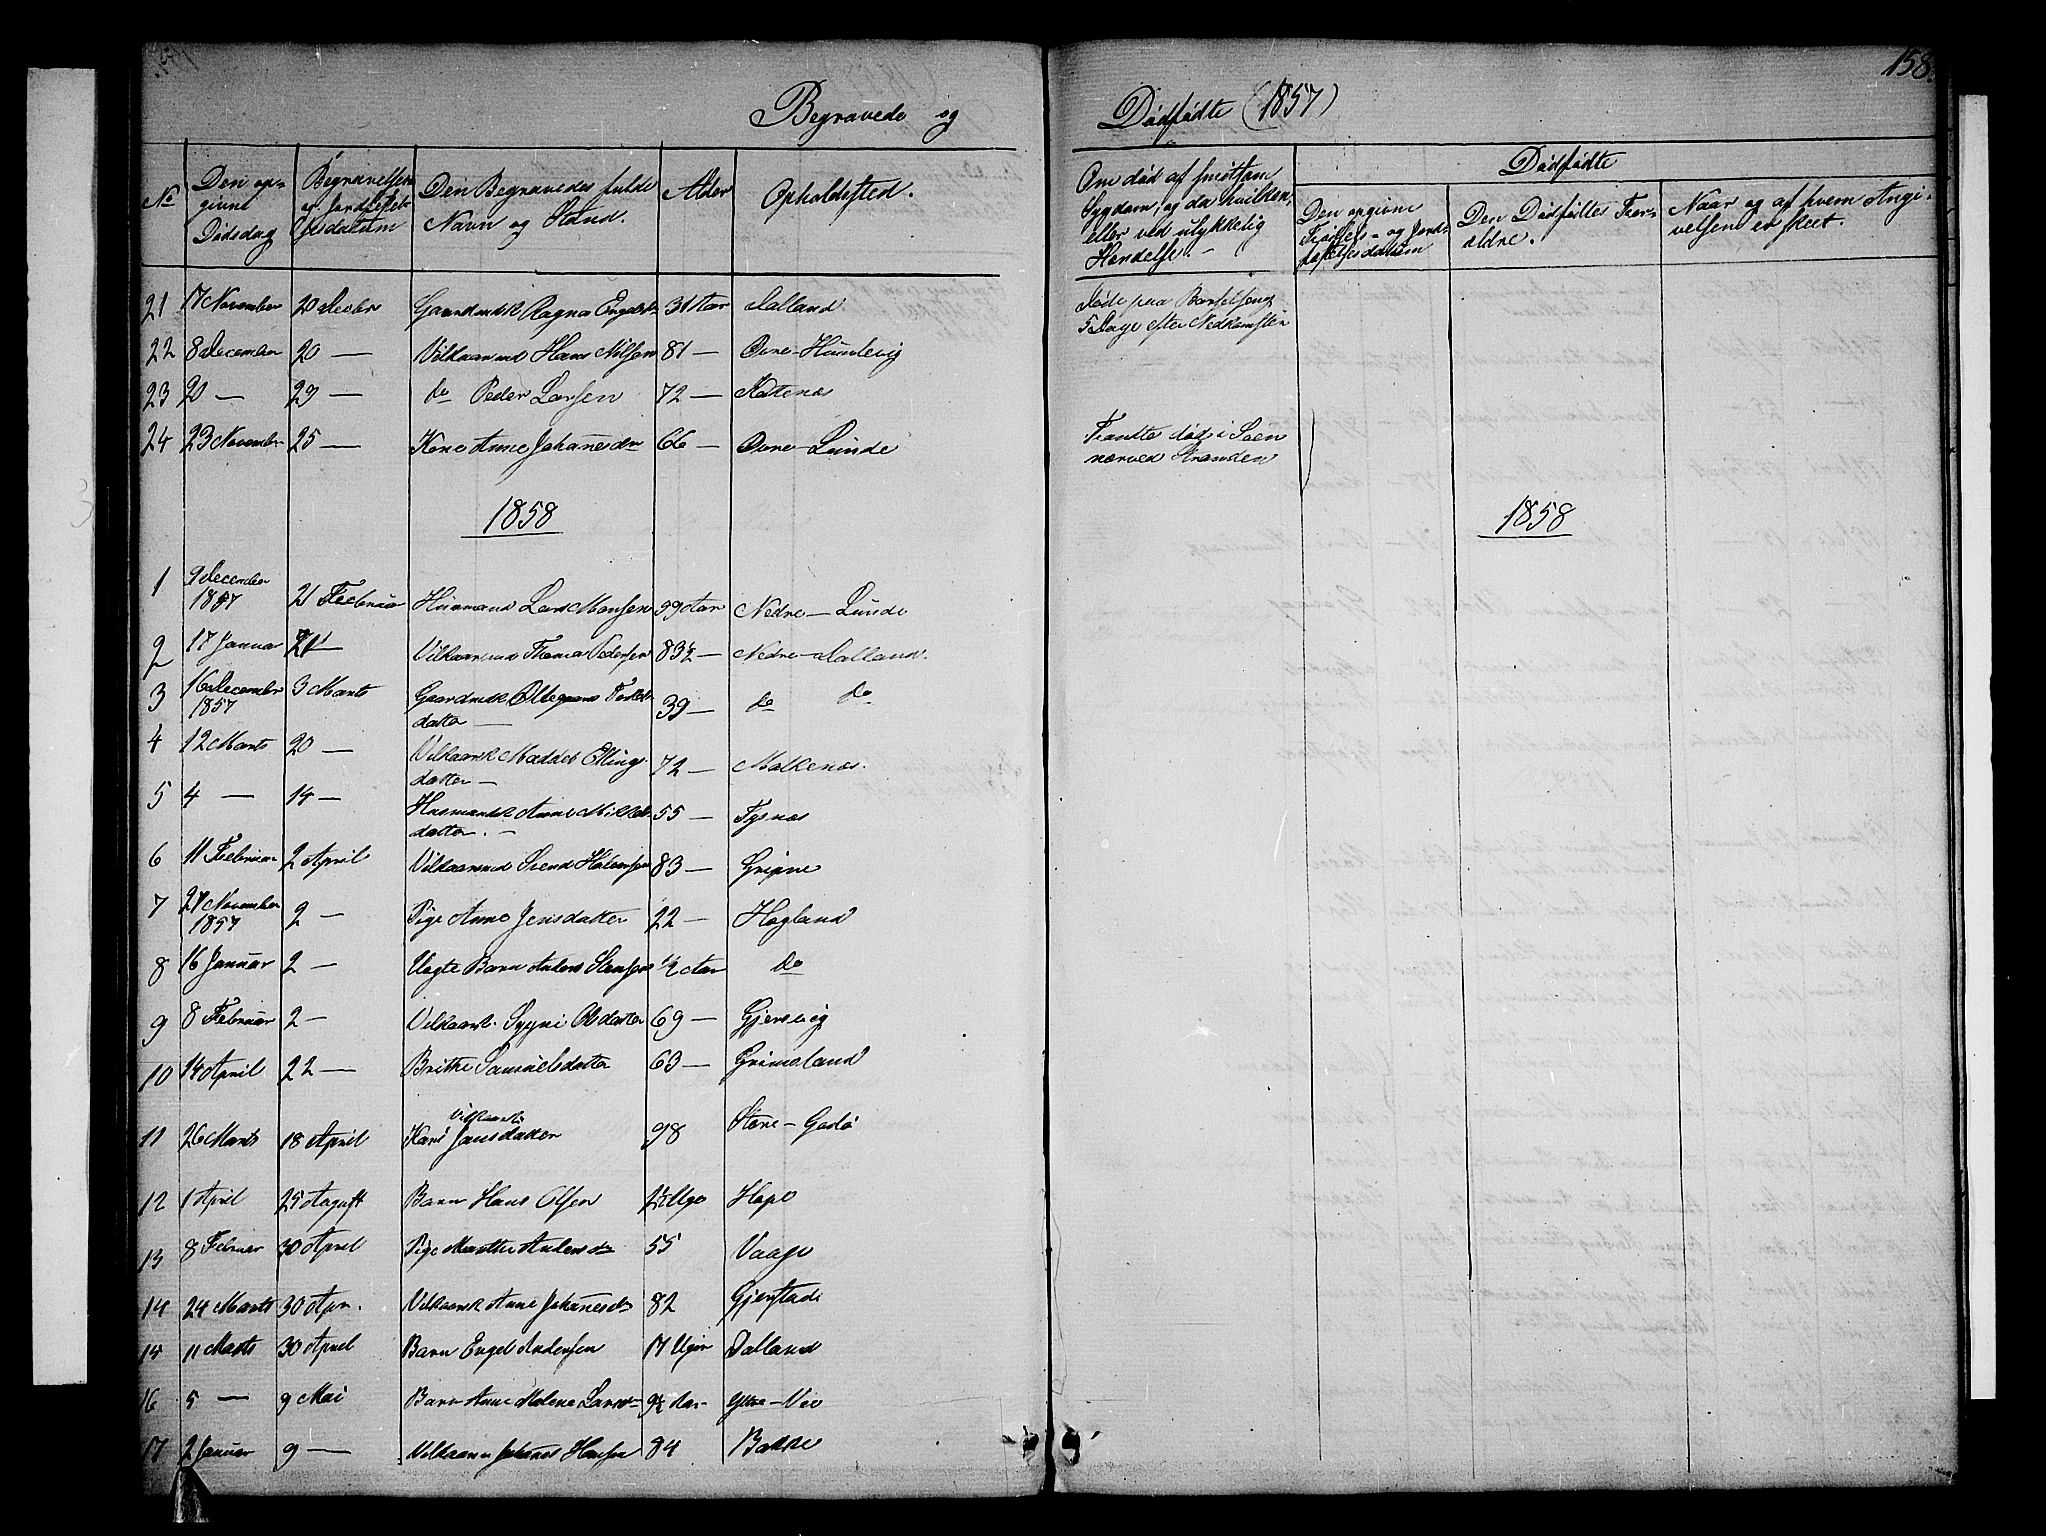 158.
Begravede og Dødfødte (1857)
No
Den opgivne Dødsdag
Begravelsen og Jordfæstelsesdatum
Den Begravedes fulde Navn og Stand.
Alder
Opholdssted.
Om død af smitsom Sygdom, og da hvilken, eller ved ulykkelig Hændelse. –
Dødfødte
Den opgivne Fødsels- og Jordfæstelsesdatum
Den Dødfødtes Forældre.
Naar og af hvem Angivelsen er skeet.
21 17 November 20 Decbr Gaardmsk Ragna Engelsd. 31 Aar Dalland Døde paa Barselseng 5 Dage efter Nedkomsten
22 8 December 20 — Vilkaarmd Hans Nilsen 81 — Øvre-Humlevig
23 20 — 23 — do Peder Larsen 72 —
24 23 November 25 — Kone Anne Johanesdr 66 — Øvre-Lunde Fandtes død i Søen nærved Stranden
1858
1858
1 9 December 1857 21 Februar Huusmand Lars Monsen 59 Aar Nedre-Lunde
2 17 Januar 21 — Vilkaarmd Thomas Pedersen 83½ — Nedre-Dalland.
3 16 December 1857 3 Marts Gaardmsk Oltegaard datter — 39 — do do
4 12 Marts 20 — Vilkaarsk Maddes Ellings datter — 72 — Malkenæs.
5 4 — 14 — Husmandsk Anne Mikkels datter. — 55 — Tysnæs
6 11 Februar 2 April Vilkaarmd Svend 83 — Gripne
7 27 November 1857 2 — Pige Anne Jensdatter 22 — Hogland
8 16 Januar 2 — Uægte Barn Anders 1½ Aar do
9 8 Februar 2 — Vilkaarsk Sygni Olsdatter 69 — Gjersvig
10 14 April 22 — Brithe Samuelsdatter 63 — Grimsland
11 26 Marts 18 April Vilkaarsk Kari Jansdatter 98 Store-Godø
12 1 April 25 August Barn Hans Olsen 2½ Uge Hope
13 8 Februar 30 April Pige Marthe Andersdr 55 Vaage
14 24 Marts 30 Apr. Vilkaarsk Anne Johanesdr 82 Gjerstad
15 11 Marts 30 April Barn Engel Andersen 17 Uger Dalland
16 5 — 9 Mai Barn Anne Malene Larsdr 9½ Aar Ytre-Vee
17 2 Januar 9 — Vilkaarm Johanes Hansen 84 Bakke